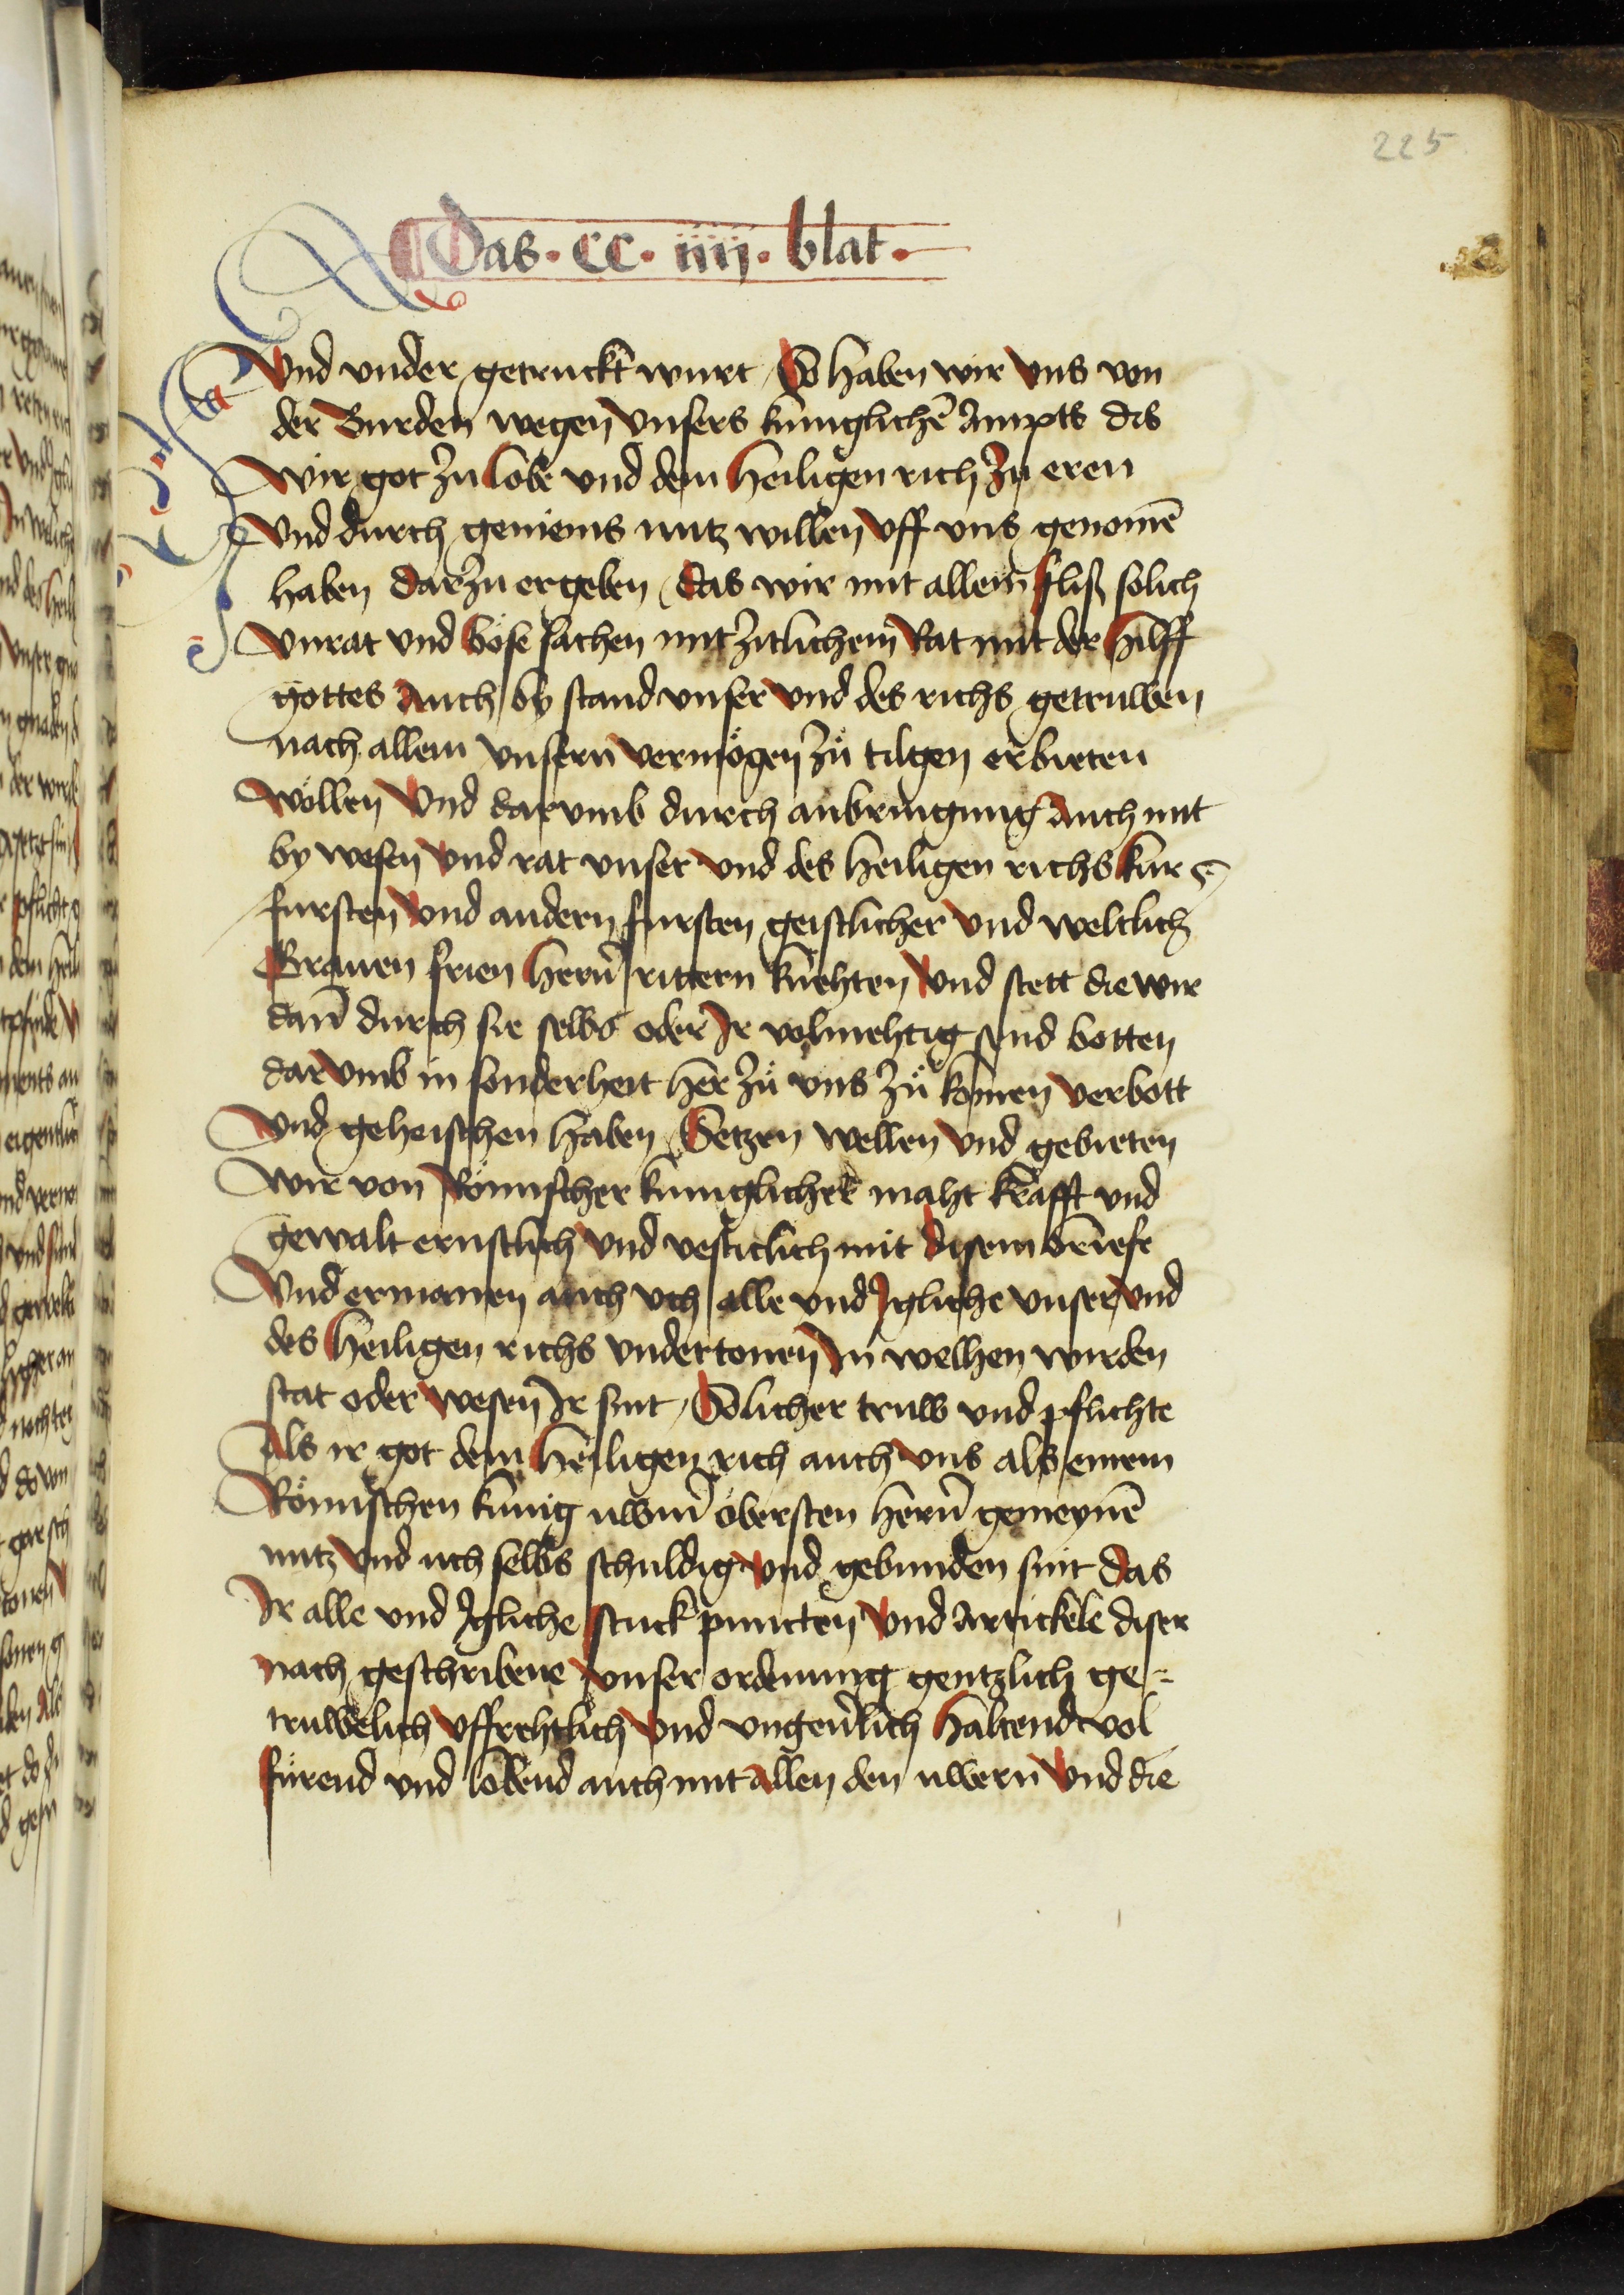 225
Das · CC · iiij · blat ·
Vnd vnder getruckt wurt So haben wir vns von
der Burden wegen vnsers kuniglichē Ampts das
wir got zu lobe vnd dem heiligen rich zu eren
Vnd durch gemeins nutz willen vff vns genomē
haben darzu ergeben das wir mit allem fliß solich
vnrat vnd böse sachen mit zitlichem Rat mit der hilff
gottes Auch by stand vnser vnd des richs getruwen
nach allem vnserm vermögen zů tilgen erbieten
wöllen Vnd darvmb durch anbringung Auch mit
by wesen vnd rat vnser vnd des heiligen richs kur
fursten vnd andern fursten geistlicher vnd weltlich
Grauen frien hern̄ rittern knehten vnd stett die wir
dan̄ durch sie selbs oder Ir volmehtig send botten
darvmb in sonderheit her zů vns zů komen verbott
vnd geheischen haben Setzen wellen vnd gebieten
wir von Römischer kuniglicher maht krafft vnd
gewalt ernstlich vnd vesticlich mit disem brieffe
Vnd ermanen auch vch alle vnd Igliche vnser vnd
des heiligen richs vndertonen In welhen wirden
stat oder wesen Ir sint Solicher truw vnd pflichte
Als ir got dem heiligen rich auch vns als einem
Römischen kunig uwerm̄ obersten hern̄ gemeynē
nutz vnd uch selbs schuldig vnd gebunden sint das
Ir alle vnd Igliche stuck puncten vnd Artickele diser
nach geschribene vnser ordenung gentzlich ge=
truwelich vffrehtlich vnd vngeuerlich haltend vol
fürend vnd lobend auch mit allen den uwern vnd die